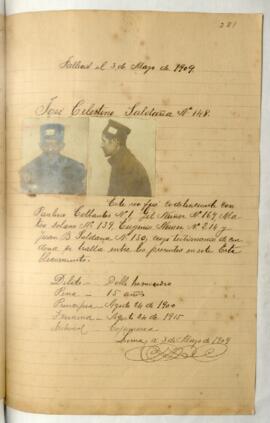 281
Falleció el 3 de Mayo de 1909.
José Celestino Saldaña Nº 148.
Este reo fué condenado con
Paulino Collantes Nº 1, Gil Nº 169, Ma-
Solano Nº 139, Eugenio Nº 214 y
Juan B. Saldaña Nº 130, cuyo testimonio de con-
dena se halla entre los presentes en este Esta-
blecimiento.
Delito - Doble homicidio
Pena - 15 años
Principia - Agosto 24 de 1900
Termina - Agosto 24 de 1915
Cajamarca
Lima, a 3 de Mayo de 1909